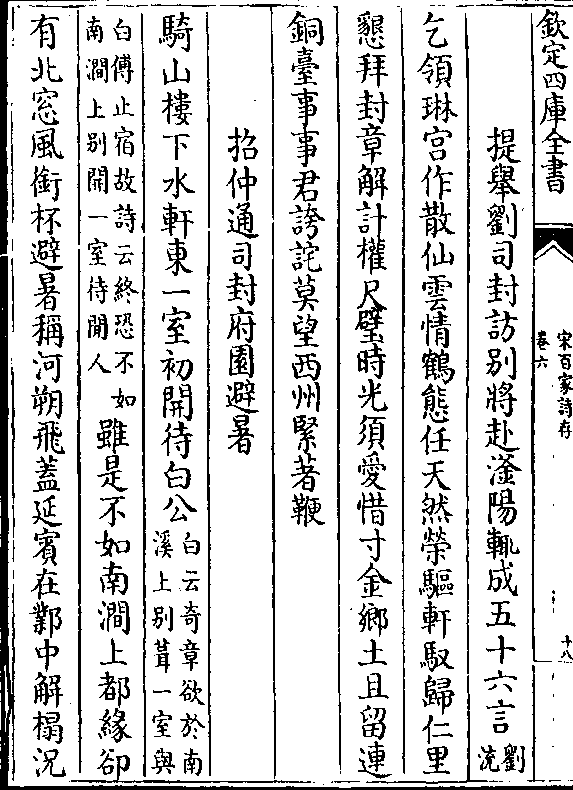 欽定四庫全書
宋百家詩存
卷六
十八
提舉劉司封訪别將赴滏陽輒成五十六言劉沇
乞領琳宫作散仙雲情鶴態任天然榮驅軒馭歸仁里
懇拜封章解計權尺璧時光須愛惜寸金鄉土且留連
銅臺事事君誇詫莫望西州緊著鞭
招仲通司封府園避暑
騎山樓下水軒東一室初開待白公白云奇章欲於南溪上别葺一室與
白傅止宿故詩云終恐不如南澗上别開一室待閒人雖是不如南澗上都緣卻
有北窓風銜杯避暑稱河朔飛蓋延賓在鄴中解榻況